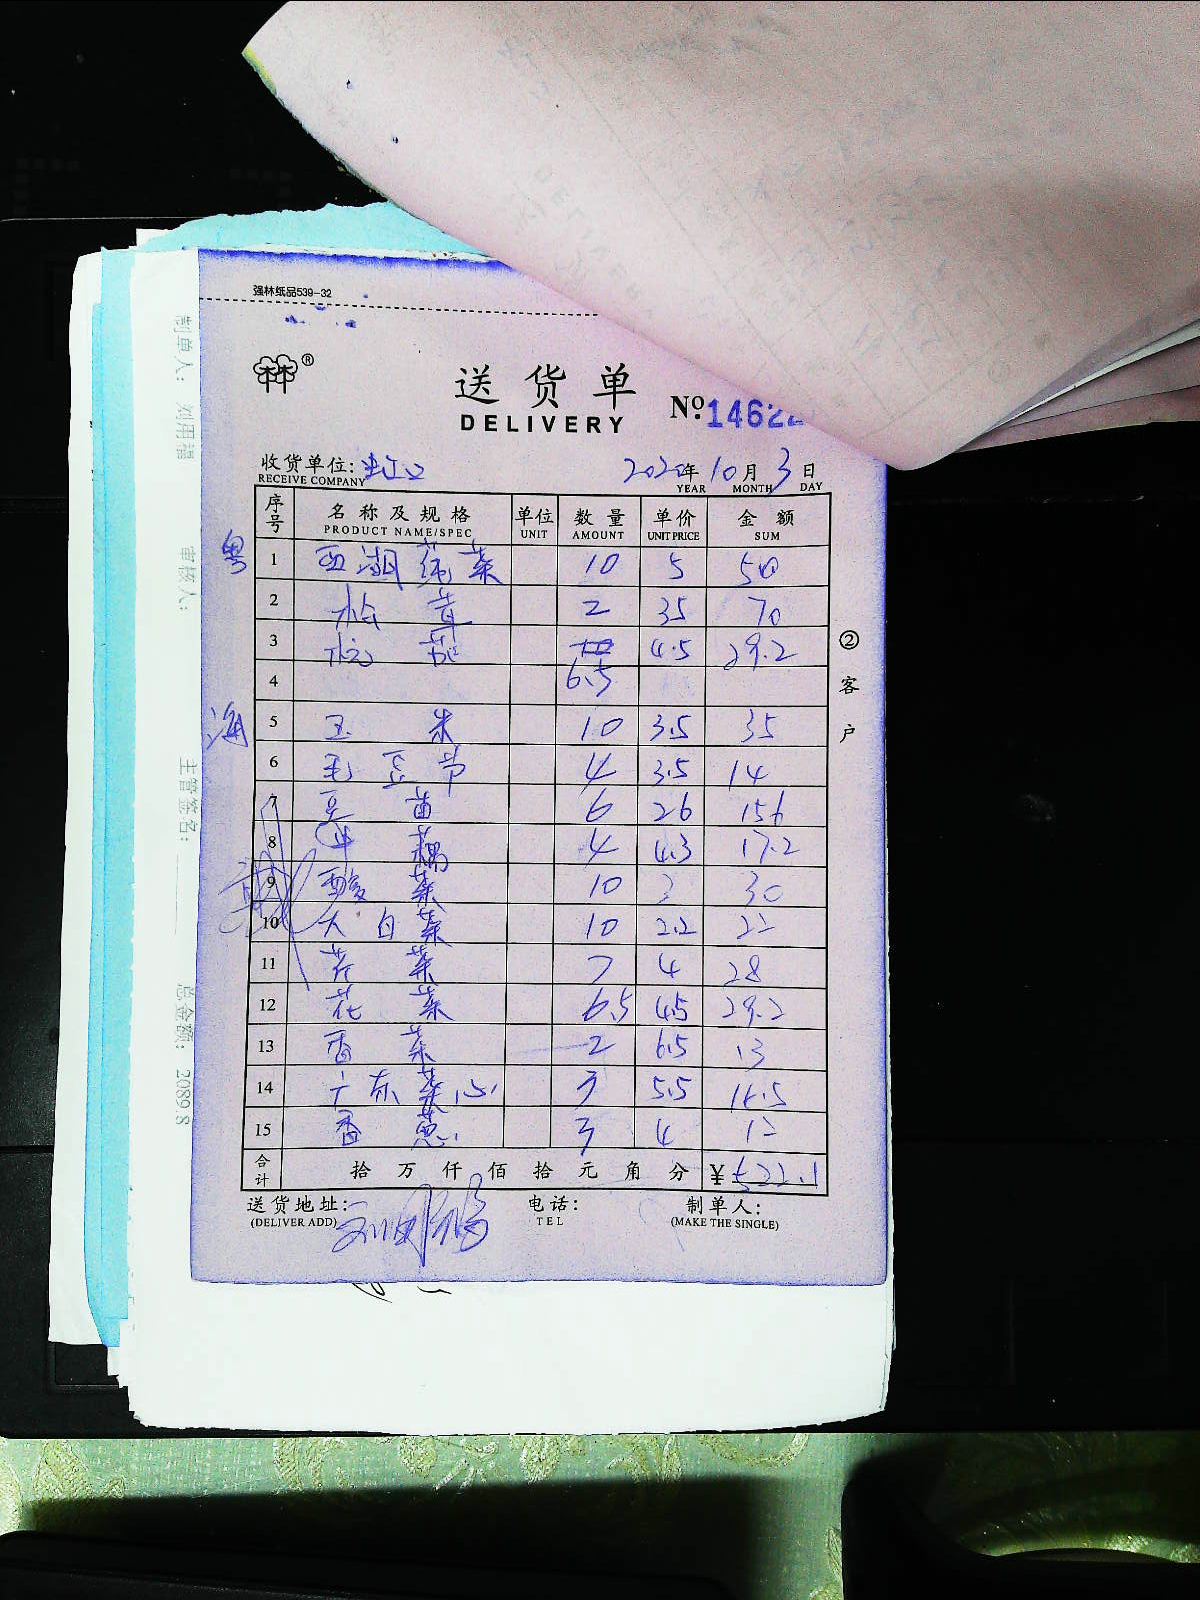 强林纸品539-32
林®
送货单
DELIVERY
№ 14622
收货单位:
RECEIVE COMPANY
2022年 10月 3日
YEAR MONTH DAY
序号 名称及规格 单位 数量 单价 金额
PRODUCT NAME/SPEC UNIT AMOUNT UNIT PRICE SUM
1 西湖莼菜 10 5 50
2 松茸 2 35 70
3 4.5 29.2
4 6.5
5 玉米 10 3.5 35
6 毛豆节 4 3.5 14
7 豆苗 6 26 156
8 藕 4 4.3 17.2
9 酸菜 10 3 30
10 大白菜 10 2.2 22
11 芹菜 7 4 28
12 花菜 6.5 4.5 29.2
13 香菜 2 6.5 13
14 广东菜心 3 5.5 16.5
15 香葱 3 4 12
合计 拾万仟佰拾元角分 ¥522.1
送货地址: 电话: 制单人:
(DELIVER ADD) TEL (MAKE THE SINGLE)
刘用福
②客户
粤
海
制单人: 刘用福
审核人:
主管签名:
总金额: 2089.8